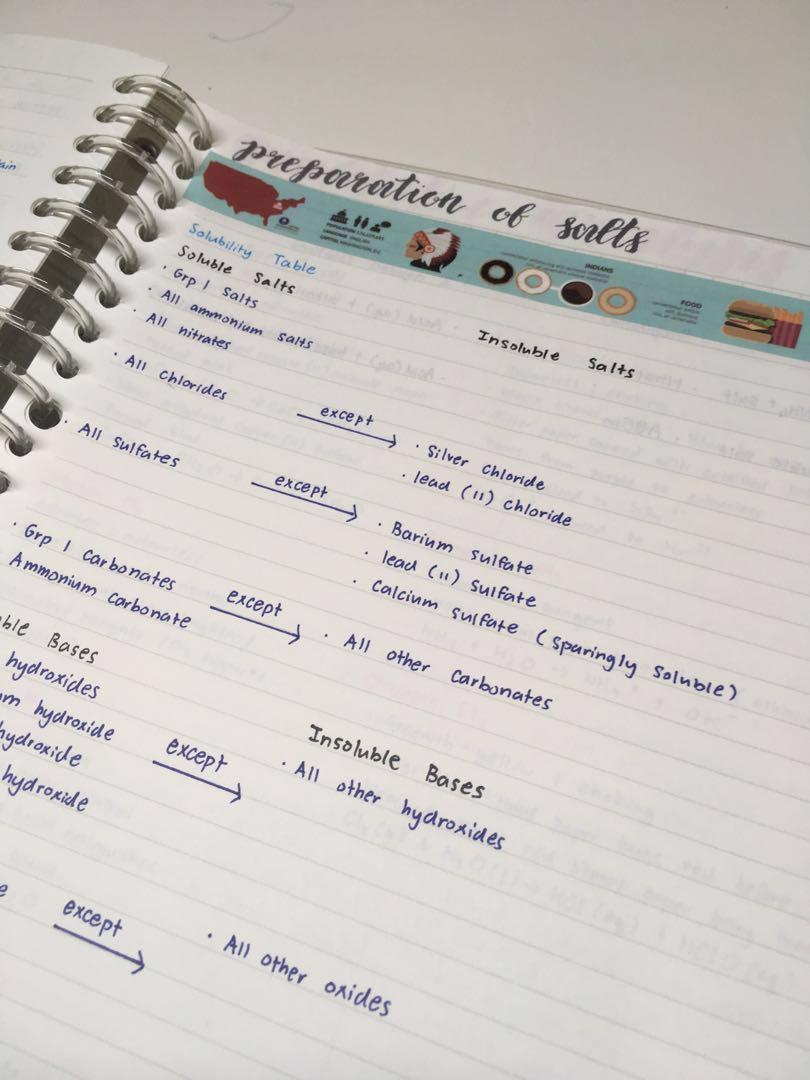 preparation of salts
POPULATION
LANGUAGE ENGLISH
CAPITAL WASHINGTON, D.C.
INDIANS
FOOD
ain
Solubility Table
Soluble Salts
Insoluble Salts
· Grp 1 salts
· All ammonium salts
· All nitrates
· All chlorides except → · Silver chloride
· lead (11) chloride
· All sulfates except → · Barium sulfate
· lead (11) sulfate
· Calcium sulfate (sparingly soluble)
· Grp 1 carbonates except → · All other carbonates
Ammonium carbonate
ble Bases
Insoluble Bases
hydroxides
um hydroxide except → · All other hydroxides
hydroxide
hydroxide
e except → · All other oxides